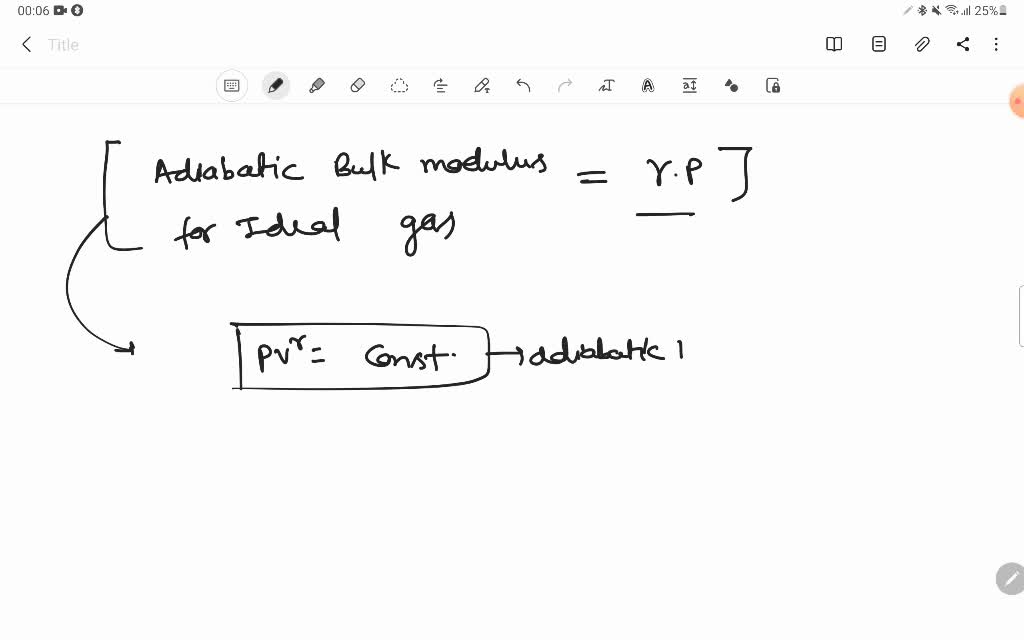 00:06 25%
Title
Adiabatic Bulk modulus = γ.P
for Ideal gas
PV^γ = Const. → adiabatic